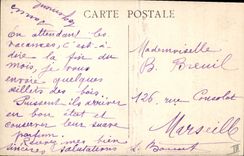 CARTE POSTALE
En attendant les
vacances, c'est à
dire la fin du
mois, je vous
envoie quelques
œillets des bois.
Puissent-ils arriver
en bon état et
conserver leur suave
parfum.
Recevez mes bien
sincères salutations
Mademoiselle
B. Breuil
126, rue Consolat
Marseille